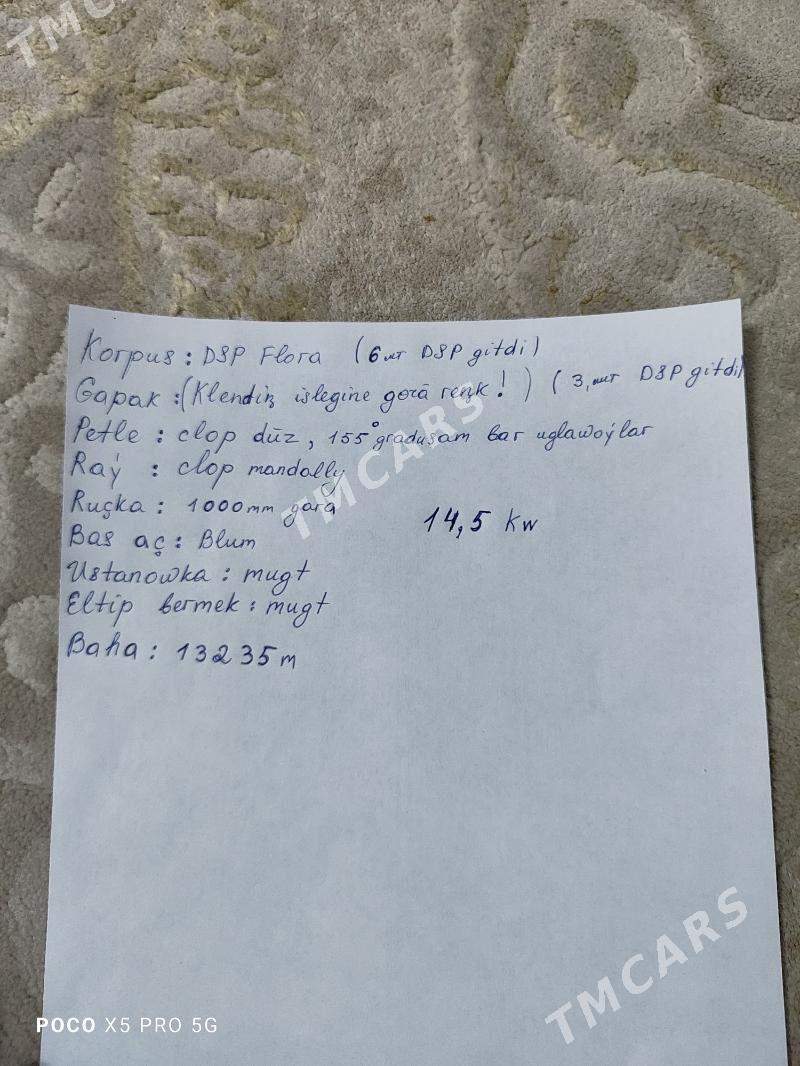 TMCARS
Korpus : DSP Flora (6шт DSP gitdi)
Gapak : (Klendiň islegine görä reňk! ) (3,шт DSP gitdi)
Petle : clop düz, 155° gradusam bar uglawoýlar
Raý : clop mandolly
TMCARS
Ruçka : 1000mm gara
14,5 kw
Bas aç : Blum
Ustanowka : mugt
Eltip bermek : mugt
Baha : 13235m
TMCARS
POCO X5 PRO 5G